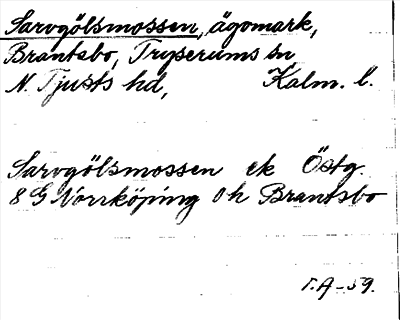 Sarvgölsmossen, ägomark,
Brantsbo, Tryserums sn
N. Tjusts hd, Kalm. l.
Sarvgölsmossen ek Östg.
8 G Norrköping 0 h Brantsbo
T.A-59.